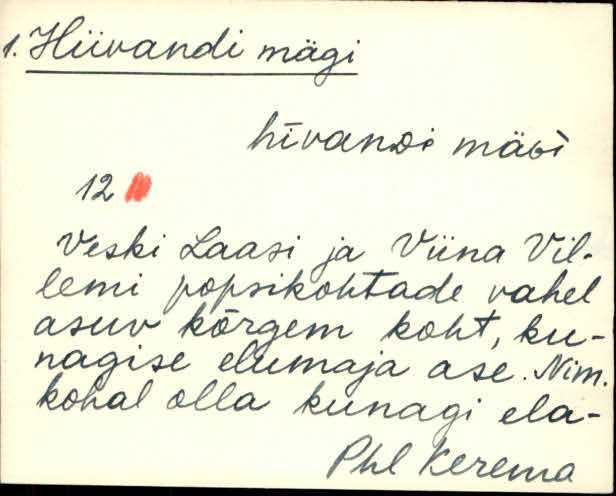 1. Hiivandi mägi
hīvandi mäɢi
12
Veski Laasi ja Viina Vil-
lemi popsikohtade vahel
asuv kõrgem koht, ku-
nagise elumaja ase. Nim.
kohal olla kunagi ela-
Phl Kerema